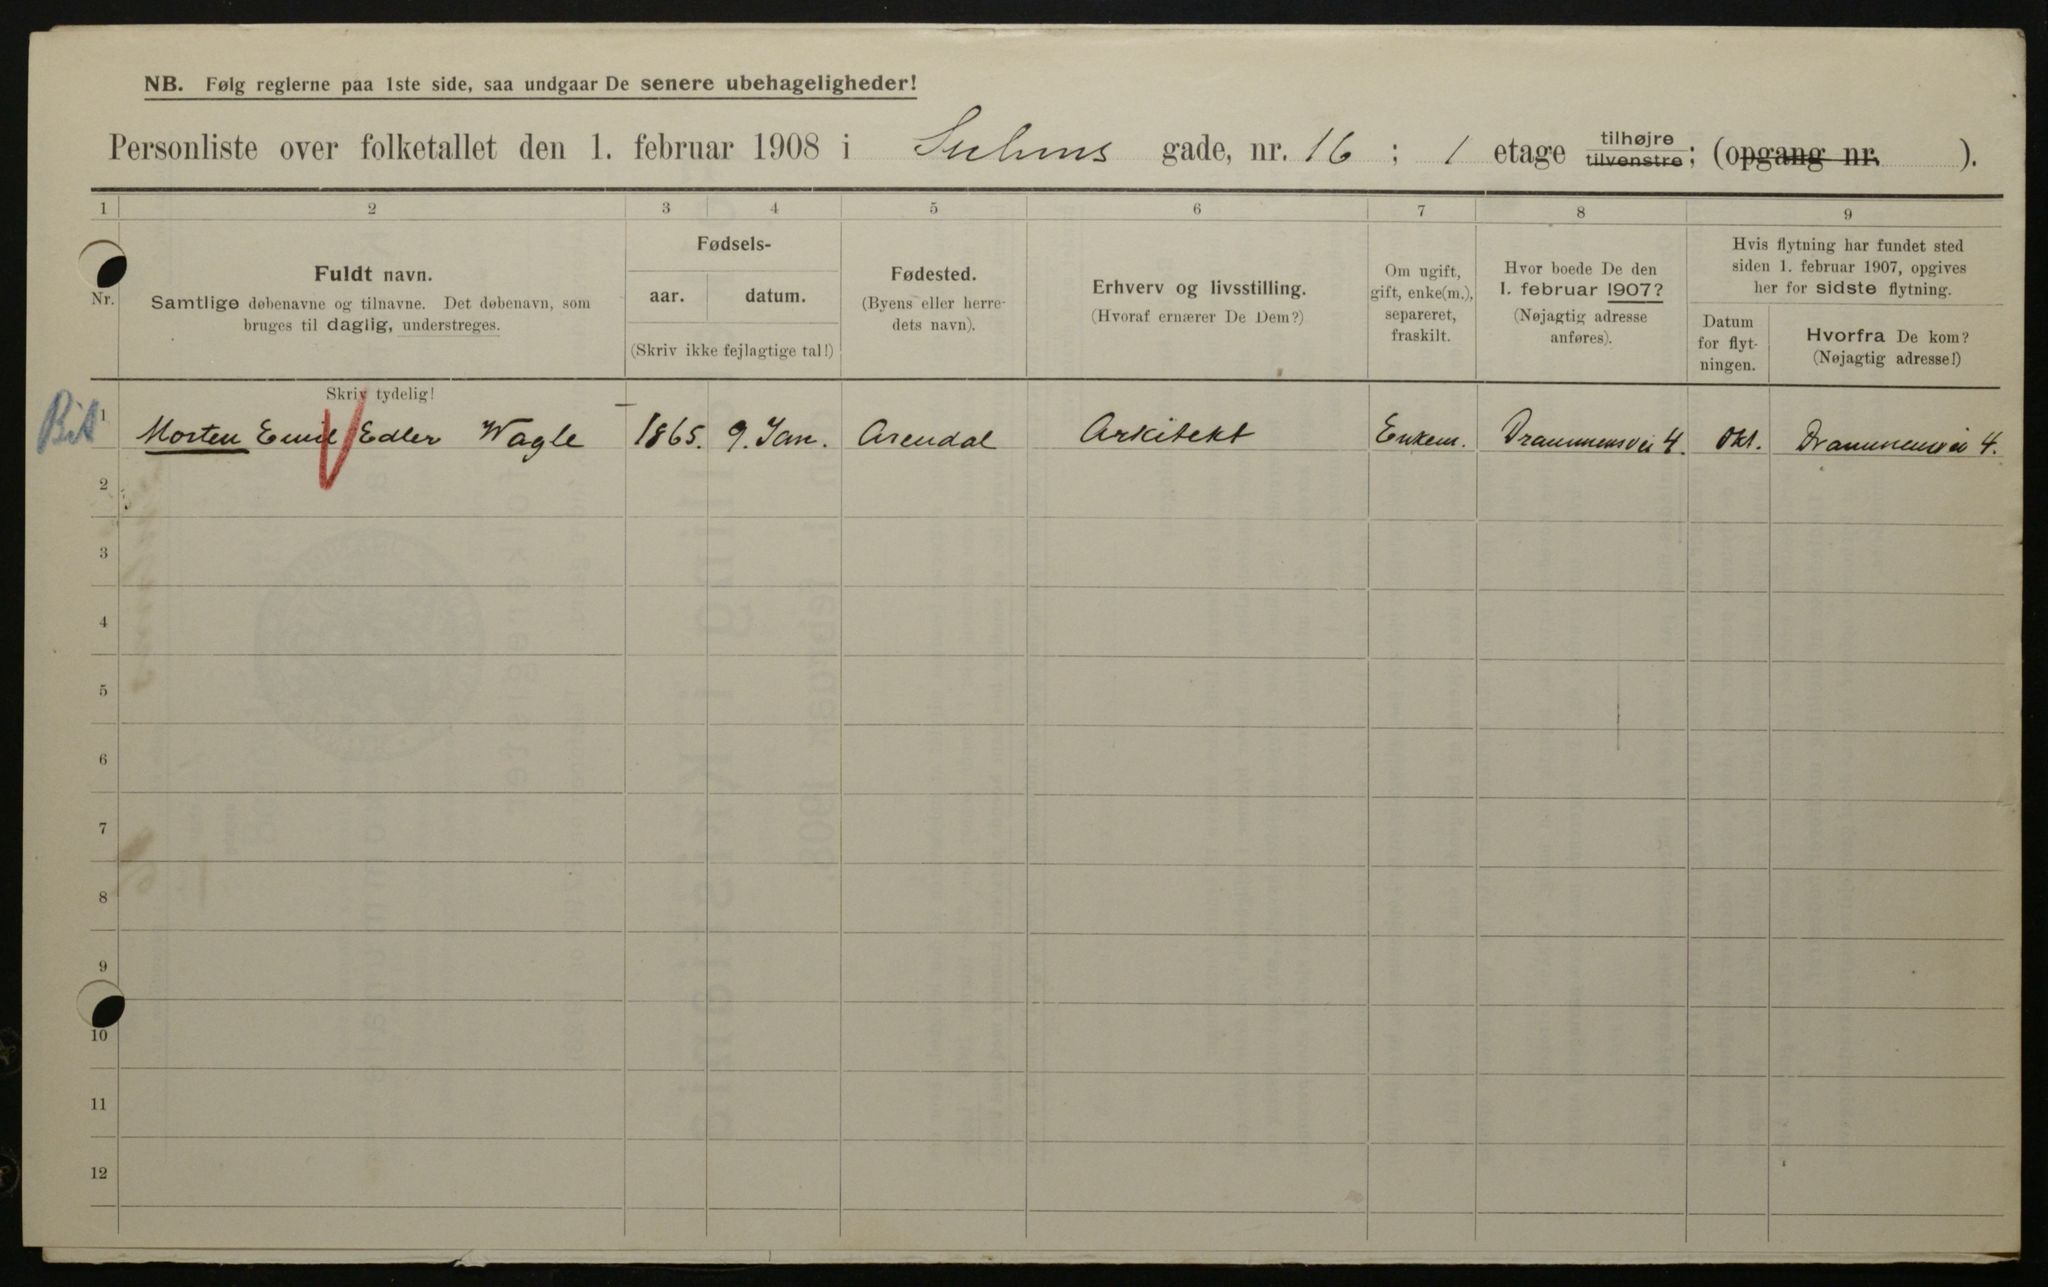 NB. Følg reglerne paa 1ste side, saa undgaar De senere ubehageligheder!
Personliste over folketallet den 1. februar 1908 i Suhms gade, nr. 16 ; 1 etage tilhøjre tilvenstre ; (opgang nr. ).
1 2 3 4 5 6 7 8 9
Nr.
Fuldt navn.
Samtlige døbenavne og tilnavne. Det døbenavn, som
bruges til daglig, understreges.
Skriv tydelig!
Fødsels-
aar. datum.
(Skriv ikke fejlagtige tal!)
Fødested.
(Byens eller herre-
dets navn).
Erhverv og livsstilling.
(Hvoraf ernærer De Dem?)
Om ugift,
gift, enke(m.),
separeret,
fraskilt.
Hvor boede De den
1. februar 1907?
(Nøjagtig adresse
anføres).
Hvis flytning har fundet sted
siden 1. februar 1907, opgives
her for sidste flytning.
Datum
for flyt-
ningen.
Hvorfra De kom?
(Nøjagtig adresse!)
1 Morten Emil Edler Wagle 1865. 9. Jan. Arendal Arkitekt Enkem. Drammensvei 4. Okt. Drammensvei 4.
2
3
4
5
6
7
8
9
10
11
12